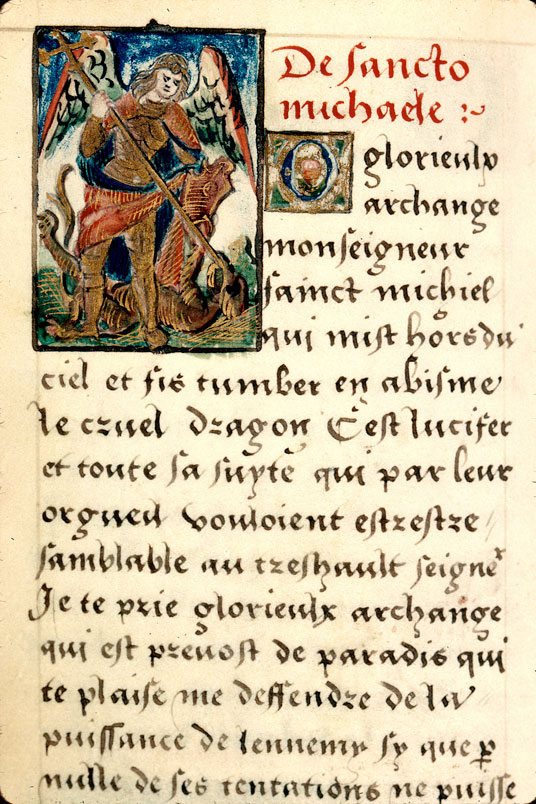 De sancto
michaele :~
O glorieulx
archange
monseigneur
sainct michiel
qui mist hors du
ciel et fis tumber en abisme
le cruel dragon Cest lucifer
et toute sa suyte qui par leur
orgueil vouloient estrestre
samblable au treshault seignr
Je te prie glorieulx archange
qui est prevost de paradis qui
te plaise me deffendre de la
puissance de lennemy sy que p
nulle de ses tentations ne puisse